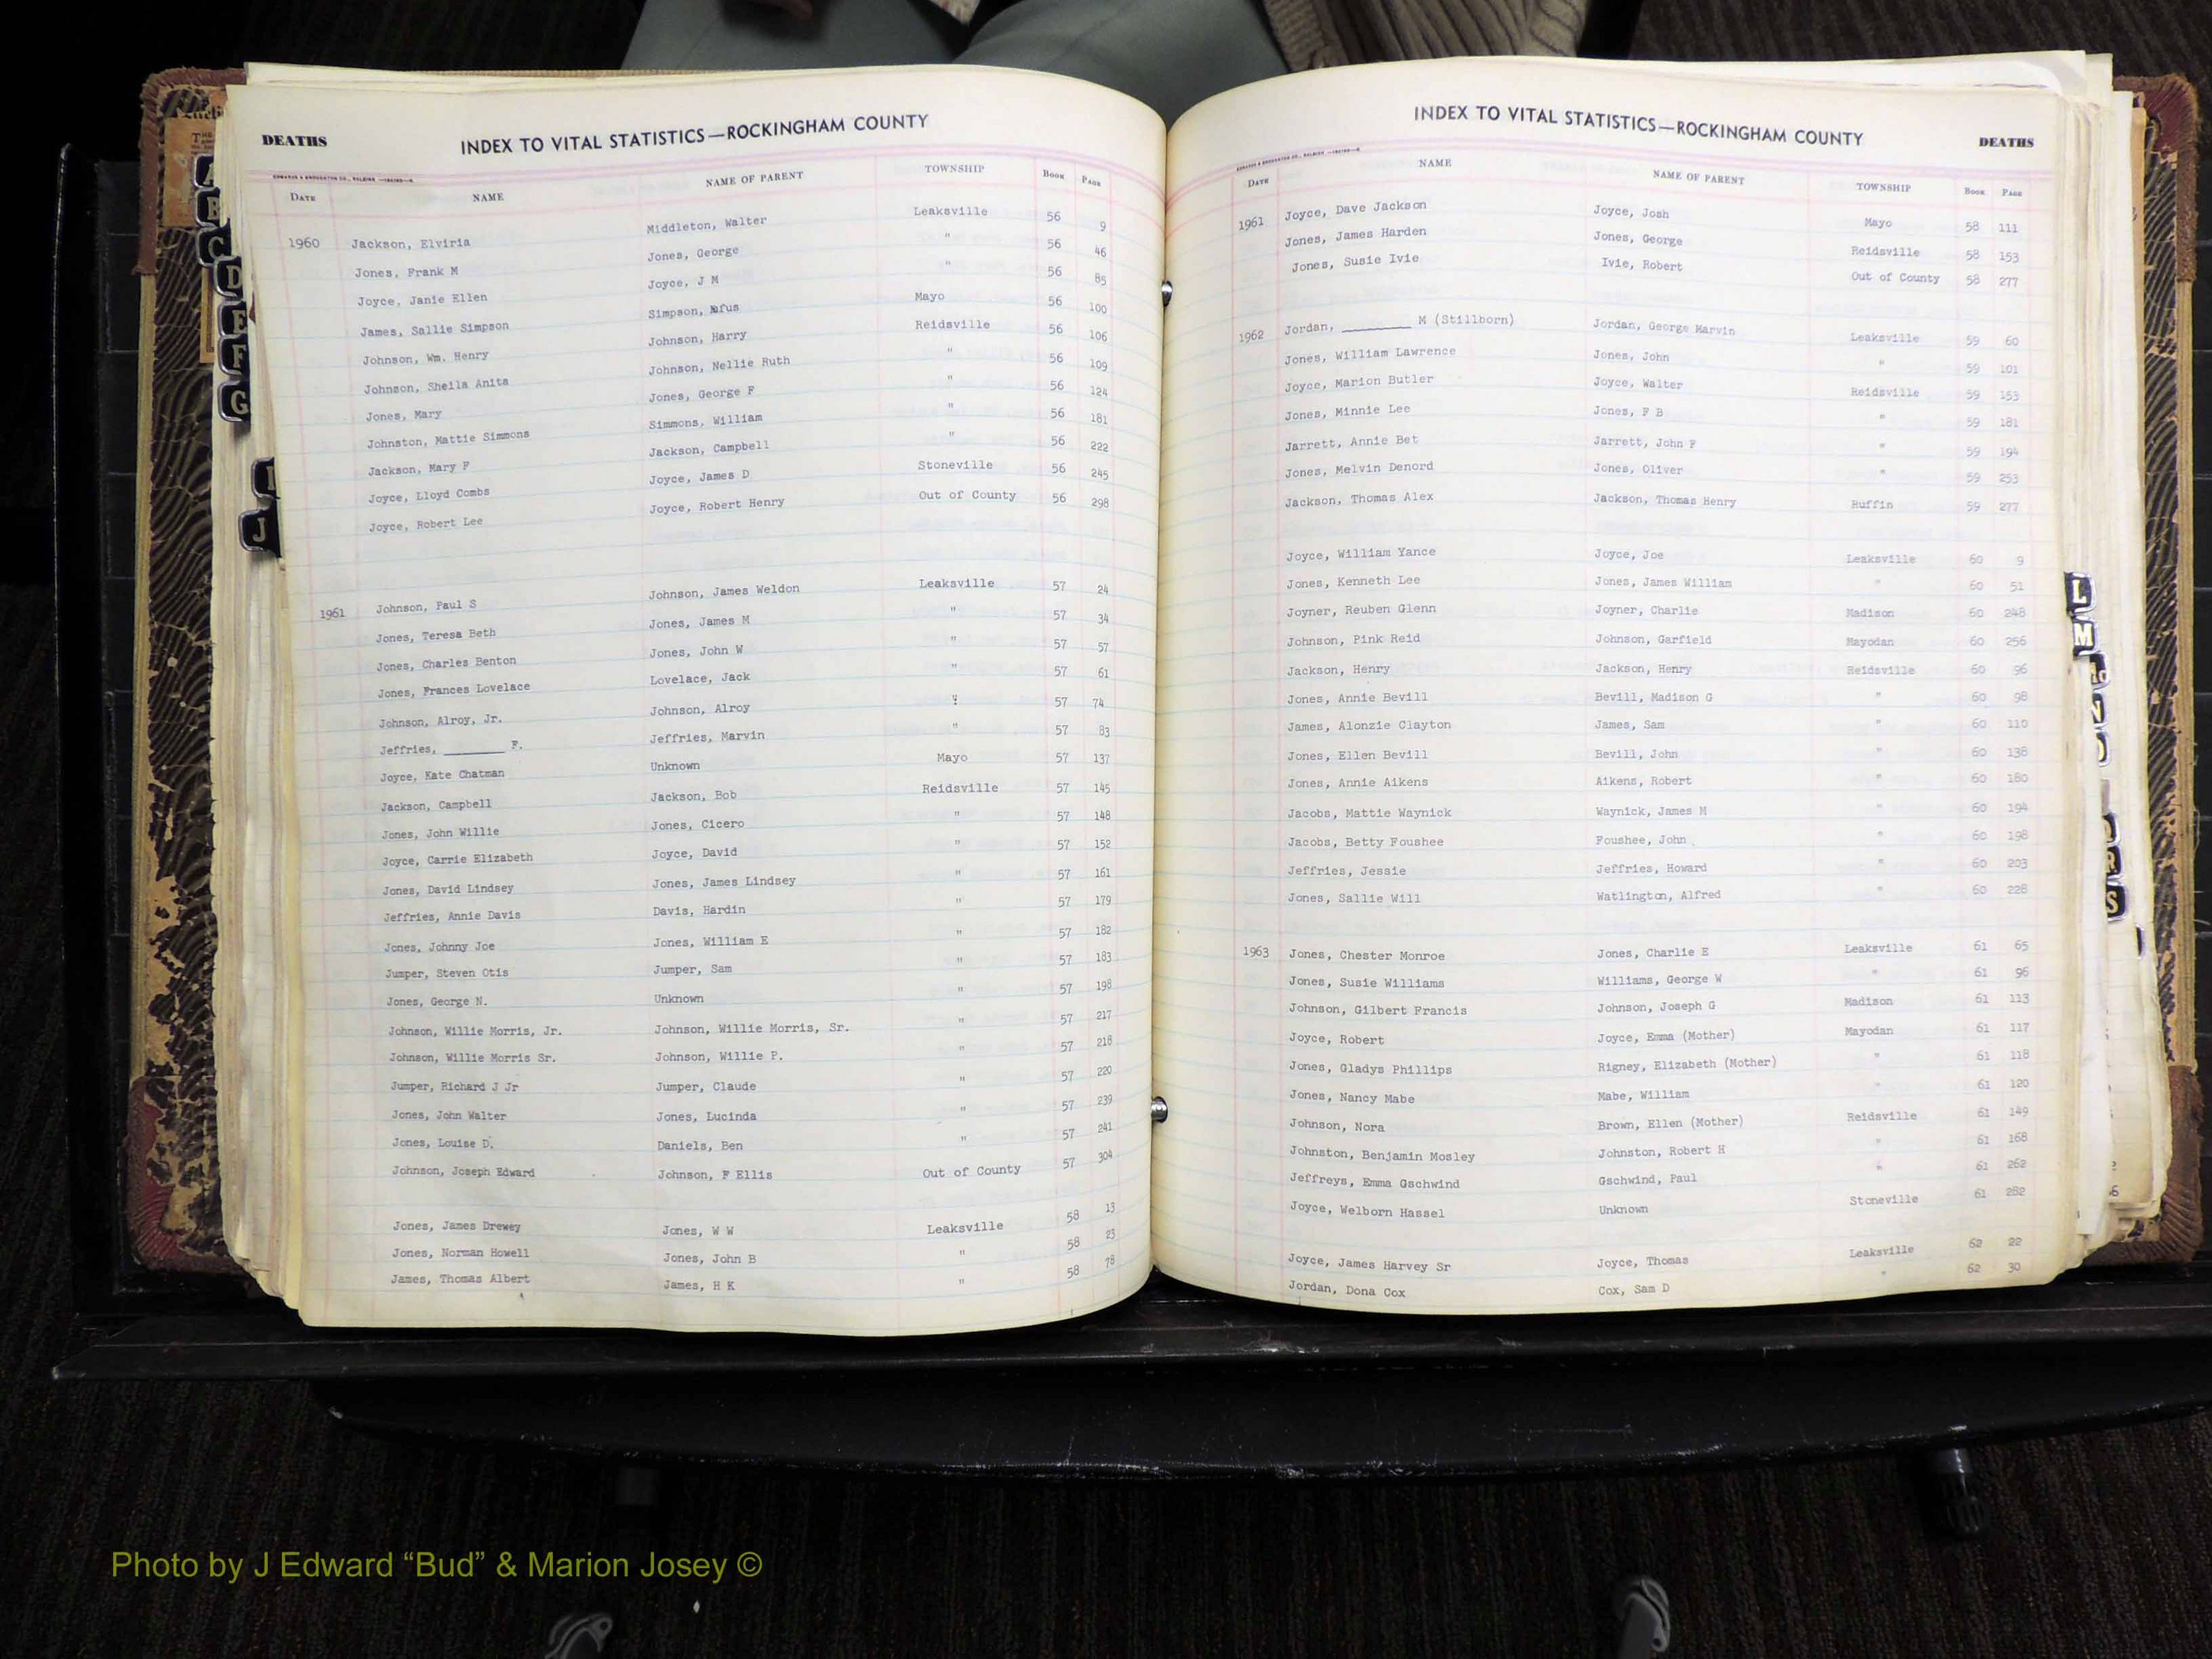 DEATHS INDEX TO VITAL STATISTICS—ROCKINGHAM COUNTY
DATE NAME NAME OF PARENT TOWNSHIP BOOK PAGE
1960 Jackson, Elviria Middleton, Walter Leaksville 56 9
Jones, Frank M Jones, George " 56 46
Joyce, Janie Ellen Joyce, J M " 56 85
James, Sallie Simpson Simpson, Rufus Mayo 56 100
Johnson, Wm. Henry Johnson, Harry Reidsville 56 106
Johnson, Sheila Anita Johnson, Nellie Ruth " 56 109
Jones, Mary Jones, George F " 56 124
Johnston, Mattie Simmons Simmons, William " 56 181
Jackson, Mary F Jackson, Campbell " 56 222
Joyce, Lloyd Combs Joyce, James D Stoneville 56 245
Joyce, Robert Lee Joyce, Robert Henry Out of County 56 298
1961 Johnson, Paul S Johnson, James Weldon Leaksville 57 24
Jones, Teresa Beth Jones, James M " 57 34
Jones, Charles Benton Jones, John W " 57 57
Jones, Frances Lovelace Lovelace, Jack " 57 61
Johnson, Alroy, Jr. Johnson, Alroy " 57 74
Jeffries, ________ F. Jeffries, Marvin " 57 83
Joyce, Kate Chatman Unknown Mayo 57 137
Jackson, Campbell Jackson, Bob Reidsville 57 145
Jones, John Willie Jones, Cicero " 57 148
Joyce, Carrie Elizabeth Joyce, David " 57 152
Jones, David Lindsey Jones, James Lindsey " 57 161
Jeffries, Annie Davis Davis, Hardin " 57 179
Jones, Johnny Joe Jones, William E " 57 182
Jumper, Steven Otis Jumper, Sam " 57 183
Jones, George N. Unknown " 57 198
Johnson, Willie Morris, Jr. Johnson, Willie Morris, Sr. " 57 217
Johnson, Willie Morris Sr. Johnson, Willie P. " 57 218
Jumper, Richard J Jr Jumper, Claude " 57 220
Jones, John Walter Jones, Lucinda " 57 239
Jones, Louise D. Daniels, Ben " 57 241
Johnson, Joseph Edward Johnson, F Ellis Out of County 57 304
Jones, James Drewey Jones, W W Leaksville 58 13
Jones, Norman Howell Jones, John B " 58 23
James, Thomas Albert James, H K " 58 78
INDEX TO VITAL STATISTICS—ROCKINGHAM COUNTY DEATHS
DATE NAME NAME OF PARENT TOWNSHIP BOOK PAGE
1961 Joyce, Dave Jackson Joyce, Josh Mayo 58 111
Jones, James Harden Jones, George Reidsville 58 153
Jones, Susie Ivie Ivie, Robert Out of County 58 277
1962 Jordan, ________ M (Stillborn) Jordan, George Marvin Leaksville 59 60
Jones, William Lawrence Jones, John " 59 101
Joyce, Marion Butler Joyce, Walter Reidsville 59 153
Jones, Minnie Lee Jones, F B " 59 181
Jarrett, Annie Bet Jarrett, John F " 59 194
Jones, Melvin Denord Jones, Oliver " 59 253
Jackson, Thomas Alex Jackson, Thomas Henry Ruffin 59 277
Joyce, William Yance Joyce, Joe Leaksville 60 9
Jones, Kenneth Lee Jones, James William " 60 51
Joyner, Reuben Glenn Joyner, Charlie Madison 60 248
Johnson, Pink Reid Johnson, Garfield Mayodan 60 256
Jackson, Henry Jackson, Henry Reidsville 60 96
Jones, Annie Bevill Bevill, Madison G " 60 98
James, Alonzie Clayton James, Sam " 60 110
Jones, Ellen Bevill Bevill, John " 60 138
Jones, Annie Aikens Aikens, Robert " 60 180
Jacobs, Mattie Waynick Waynick, James M " 60 194
Jacobs, Betty Foushee Foushee, John " 60 198
Jeffries, Jessie Jeffries, Howard " 60 203
Jones, Sallie Will Watlington, Alfred " 60 228
1963 Jones, Chester Monroe Jones, Charlie E Leaksville 61 65
Jones, Susie Williams Williams, George W " 61 96
Johnson, Gilbert Francis Johnson, Joseph G Madison 61 113
Joyce, Robert Joyce, Emma (Mother) Mayodan 61 117
Jones, Gladys Phillips Rigney, Elizabeth (Mother) " 61 118
Jones, Nancy Mabe Mabe, William " 61 120
Johnson, Nora Brown, Ellen (Mother) Reidsville 61 149
Johnston, Benjamin Mosley Johnston, Robert H " 61 168
Jeffreys, Emma Gschwind Gschwind, Paul " 61 262
Joyce, Welborn Hassel Unknown Stoneville 61 282
Joyce, James Harvey Sr Joyce, Thomas Leaksville 62 22
Jordan, Dona Cox Cox, Sam D " 62 30
B
C
D
E
F
G
I
J
L
M
R
S
Photo by J Edward “Bud” & Marion Josey ©